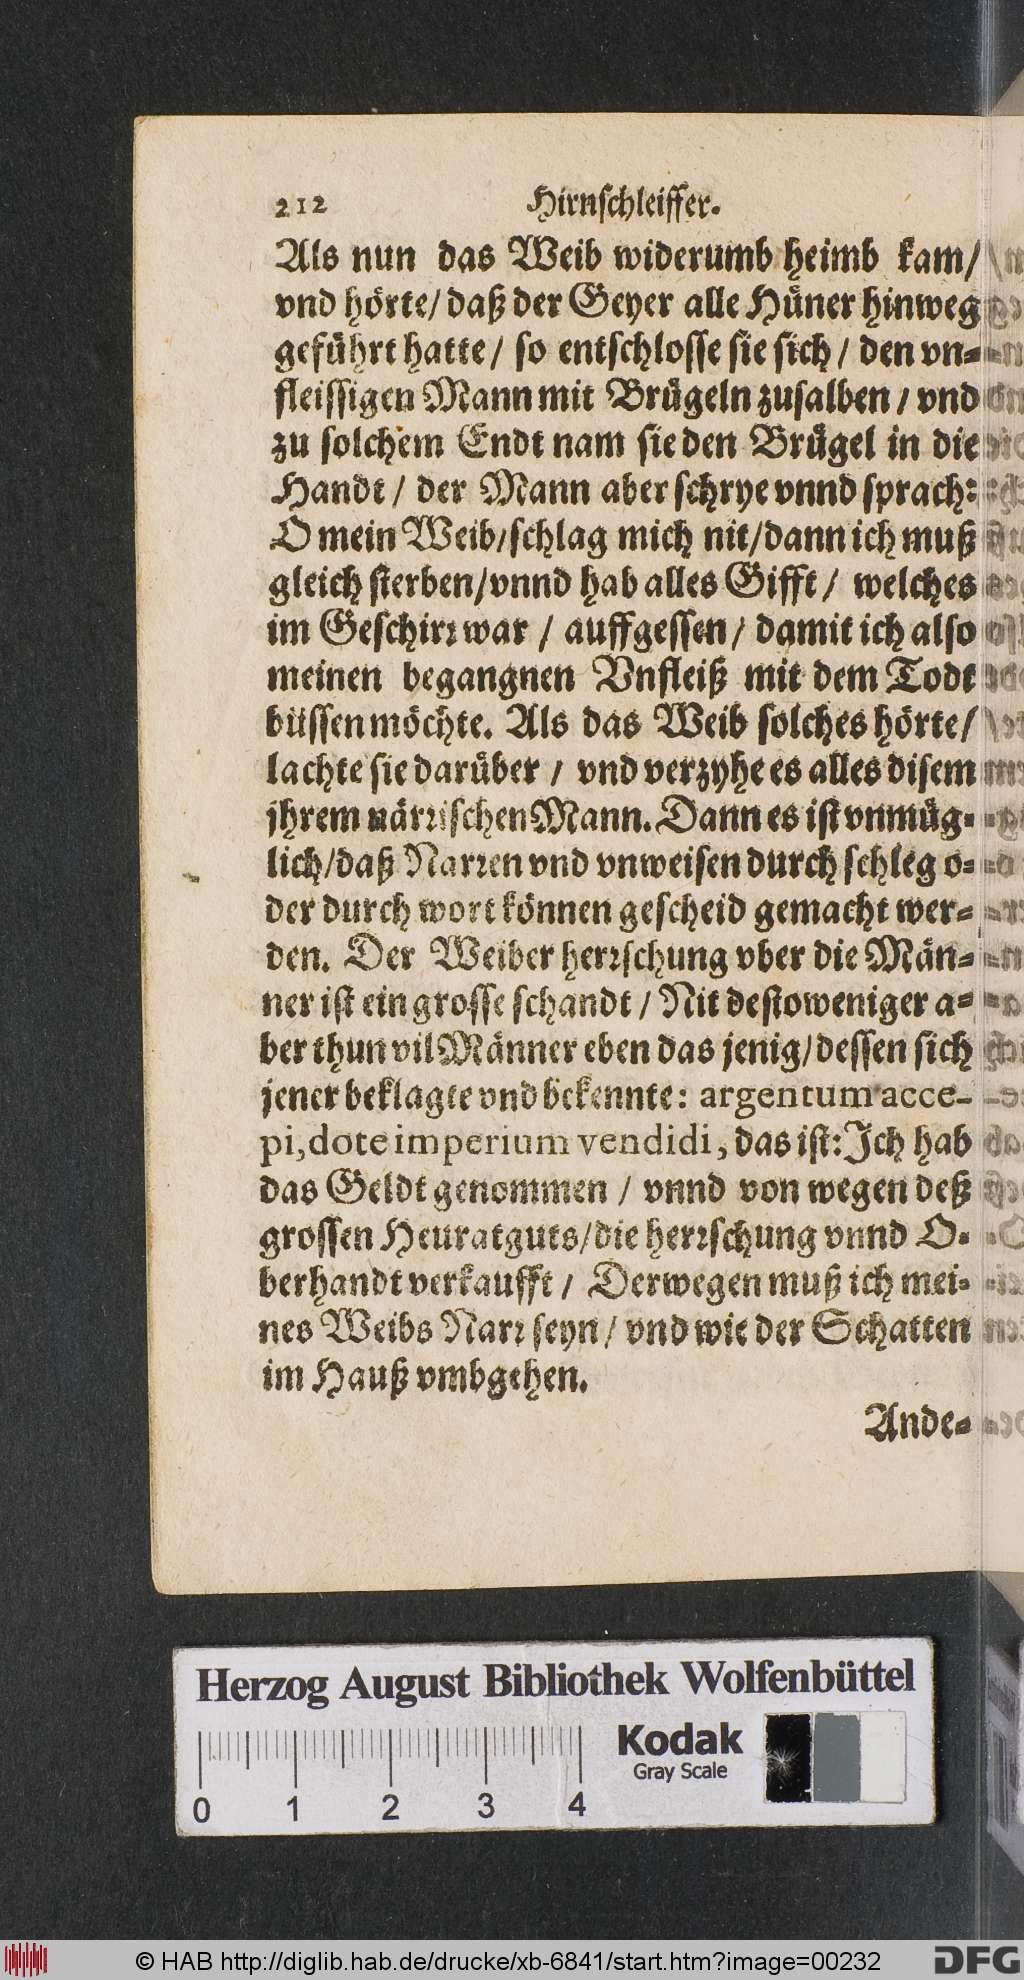 212 Hirnschleiffer.
Als nun das Weib widerumb heimb kam/
vnd hörte/ daß der Geyer alle Hüner hinweg
geführt hatte/ so entschlosse sie sich/ den vn-
fleissigen Mann mit Brügeln zusalben/ vnd
zu solchem Endt nam sie den Brügel in die
Handt/ der Mann aber schrye vnnd sprach:
O mein Weib/ schlag mich nit/ dann ich muß
gleich sterben/ vnnd hab alles Gifft/ welches
im Geschirr war/ auffgessen/ damit ich also
meinen begangnen Vnfleiß mit dem Todt
büssen möchte. Als das Weib solches hörte/
lachte sie darüber/ vnd verzyhe es alles disem
jhrem närrischen Mann. Dann es ist vnmüg-
lich/ daß Narren vnd vnweisen durch schleg o-
der durch wort können gescheid gemacht wer-
den. Der Weiber herrschung vber die Män-
ner ist ein grosse schandt/ Nit destoweniger a-
ber thun vil Männer eben das jenig/ dessen sich
jener beklagte vnd bekennte: argentum acce-
pi, dote imperium vendidi, das ist: Ich hab
das Geldt genommen/ vnnd von wegen deß
grossen Heuratguts/ die herrschung vnnd O-
berhandt verkaufft/ Derwegen muß ich mei-
nes Weibs Narr seyn/ vnd wie der Schatten
im Hauß vmbgehen.
Ande-
Herzog August Bibliothek Wolfenbüttel
Kodak
Gray Scale
0 1 2 3 4
© HAB http://diglib.hab.de/drucke/xb-6841/start.htm?image=00232
DFG